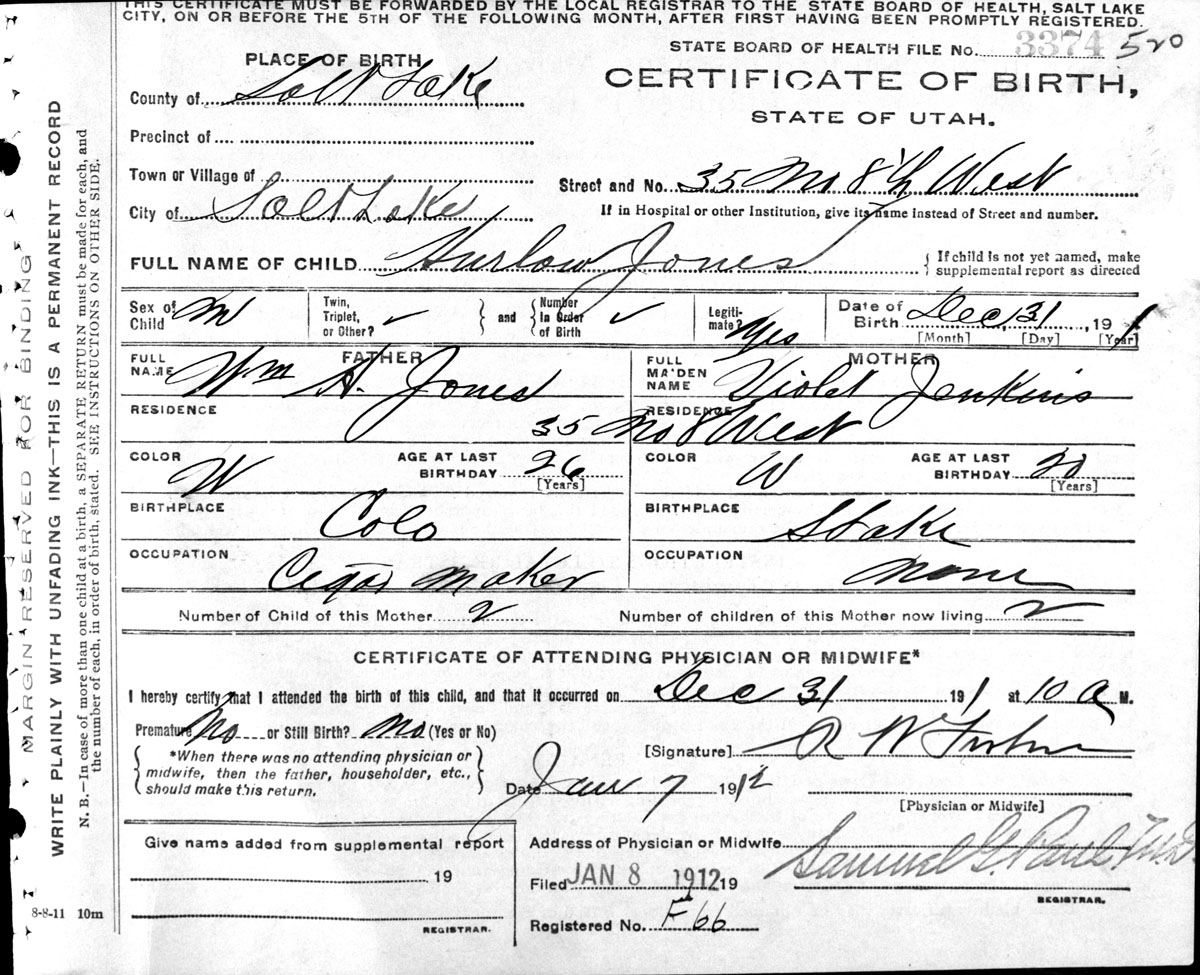 THIS CERTIFICATE MUST BE FORWARDED BY THE LOCAL REGISTRAR TO THE STATE BOARD OF HEALTH, SALT LAKE
CITY, ON OR BEFORE THE 5TH OF THE FOLLOWING MONTH, AFTER FIRST HAVING BEEN PROMPTLY REGISTERED.
STATE BOARD OF HEALTH FILE No. 3374 520
PLACE OF BIRTH
CERTIFICATE OF BIRTH,
STATE OF UTAH.
County of Salt Lake
Precinct of
Town or Village of
Street and No. 35 No 8th West
City of Salt Lake
If in Hospital or other Institution, give its name instead of Street and number.
FULL NAME OF CHILD Hurlow Jones
{ If child is not yet named, make supplemental report as directed
Sex of Child M
Twin, Triplet, or Other? ✓ } and { Number In Order of Birth ✓
Legitimate? Yes
Date of Birth Dec, 31, 191 1
[Month] [Day] [Year]
FATHER
FULL NAME Wm A. Jones
MOTHER
FULL MAIDEN NAME Violet Jenkins
RESIDENCE
RESIDENCE
35 No 8 West
COLOR W
AGE AT LAST BIRTHDAY 26
[Years]
COLOR W
AGE AT LAST BIRTHDAY 20
[Years]
BIRTHPLACE Colo
BIRTHPLACE S Lake
OCCUPATION Cigar Maker
OCCUPATION None
Number of Child of this Mother 2
Number of children of this Mother now living 2
CERTIFICATE OF ATTENDING PHYSICIAN OR MIDWIFE*
I hereby certify that I attended the birth of this child, and that it occurred on Dec 31 191 1 at 10 a M.
Premature No or Still Birth? No (Yes or No)
{ *When there was no attending physician or midwife, then the father, householder, etc., should make this return. }
[Signature] R W
Date Jan 7 1912
[Physician or Midwife]
Give name added from supplemental report
19
REGISTRAR.
Address of Physician or Midwife
Filed JAN 8 1912 19
Samuel G. Paul, M.D.
REGISTRAR.
Registered No. F 66
8-8-11 10m
MARGIN RESERVED FOR BINDING
WRITE PLAINLY WITH UNFADING INK—THIS IS A PERMANENT RECORD
N. B.—In case of more than one child at a birth, a SEPARATE RETURN must be made for each, and
the number of each, in order of birth, stated. SEE INSTRUCTIONS ON OTHER SIDE.